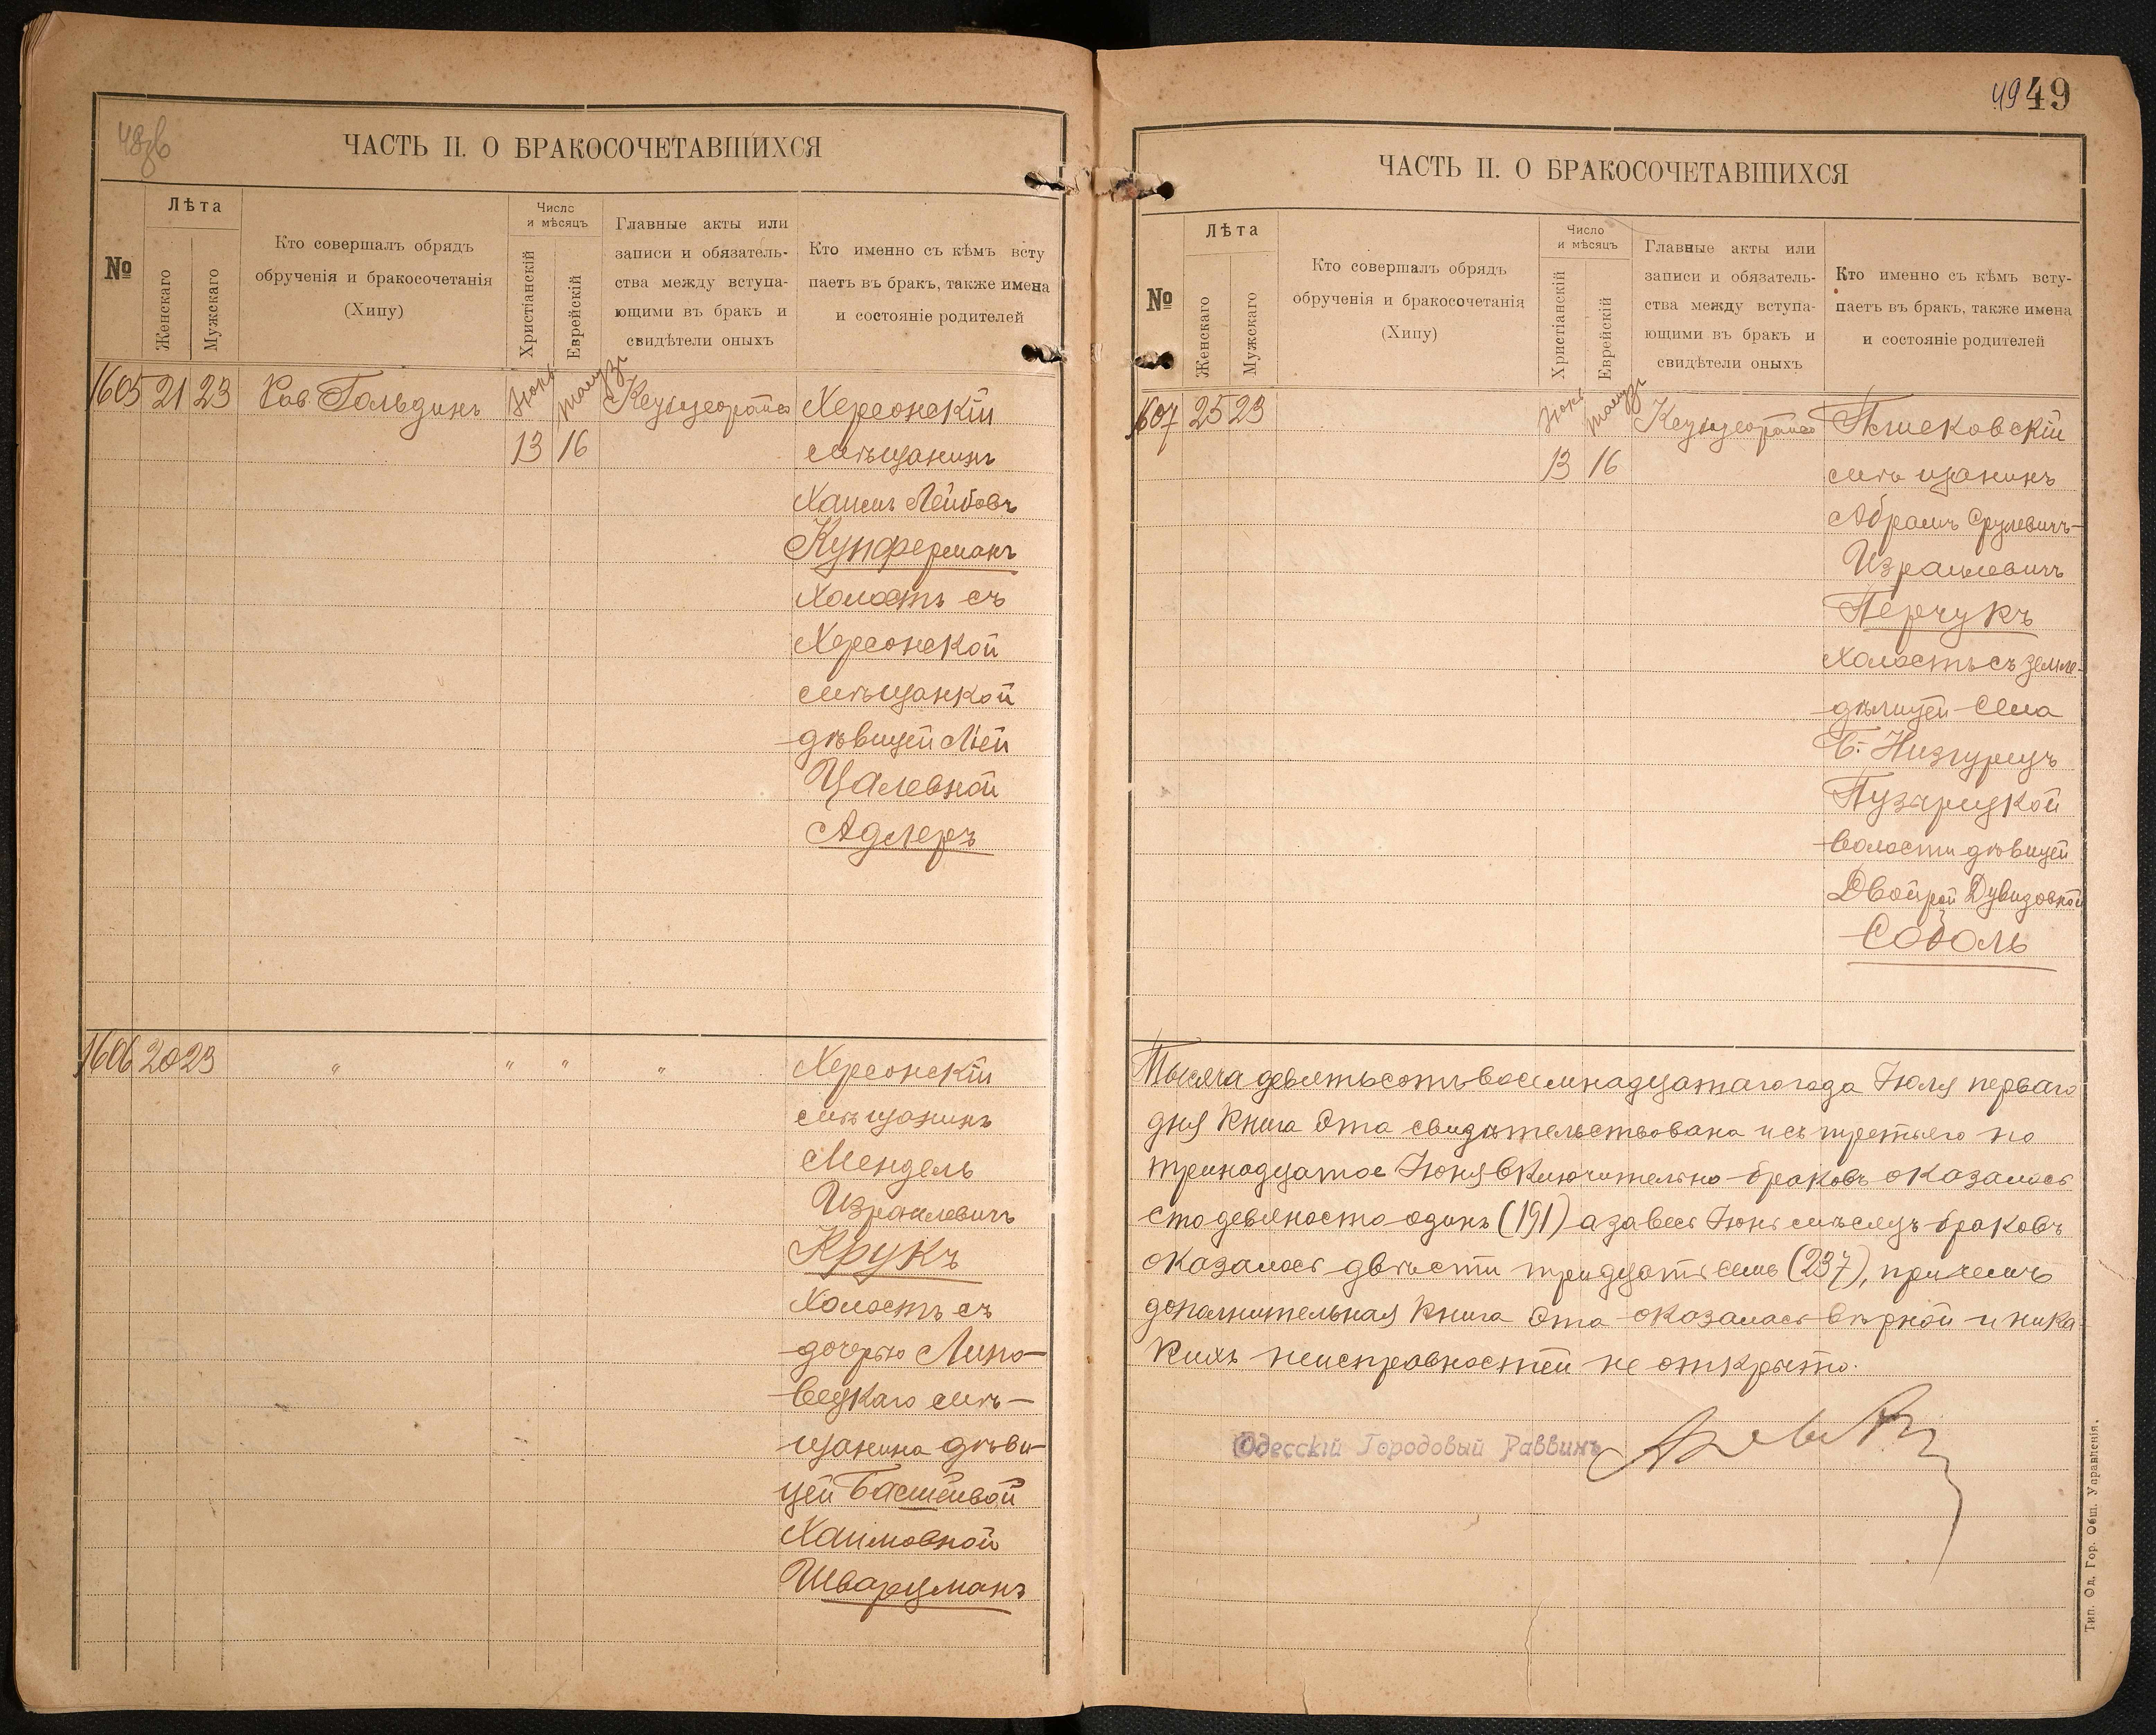 ЧАСТЬ II. О БРАКОСОЧЕТАВШИХСЯ
№
Лѣта
Женскаго
Мужскаго
Кто совершалъ обрядъ
обрученія и бракосочетанія
(Хипу)
Число
и мѣсяцъ
Христіанскій
Еврейскій
Главные акты или
записи и обязатель-
ства между вступа-
ющими въ бракъ и
свидѣтели оныхъ
Кто именно съ кѣмъ всту
паетъ въ бракъ, также имена
и состояніе родителей
1605 21 23 Рав. Гольдинъ Іюнь Тамузъ Херсонскій
13 16 мѣщанинъ
Хаимъ Лейбовъ
Купферманъ
Холостъ съ
Херсонской
мѣщанкой
дѣвицей Ліей
Цалевной
Адлеръ
1606 20 23 " " " " Херсонскій
мѣщанинъ
Мендель
Израилевичъ
Крукъ
Холостъ съ
дочерью Липо-
вецкаго мѣ-
щанина дѣви-
цей Басшейвой
Хаимовной
Шварцманъ
49 49
ЧАСТЬ II. О БРАКОСОЧЕТАВШИХСЯ
№
Лѣта
Женскаго
Мужскаго
Кто совершалъ обрядъ
обрученія и бракосочетанія
(Хипу)
Число
и мѣсяцъ
Христіанскій
Еврейскій
Главные акты или
записи и обязатель-
ства между вступа-
ющими въ бракъ и
свидѣтели оныхъ
Кто именно съ кѣмъ всту-
паетъ въ бракъ, также имена
и состояніе родителей
1607 25 23 Іюнь Тамузъ
13 16 мѣщанинъ
Абрамъ Срулевичъ-
Израилевичъ
Перчукъ
холостъ съ земле-
дѣлицей Села
Б. Низгурецъ
Пузырецкой
волости дѣвицей
Двойрой Дувидовной
Соболь
Тысяча девятьсотъ восемнадцатаго года Іюля перваго
дня Книга Эта свидѣтельствована и съ третьяго по
тринадцатое Іюня включительно браковъ оказалось
сто девяносто одинъ (191) а за весь Іюнь мѣсяцъ браковъ
оказалось двѣсти тридцать семь (237), причемъ
дополнительная Книга Эта оказалась вѣрной и ника-
кихъ неисправностей не открыто.
Одесскій Городовый Раввинъ
Тип. Од. Гор. Общ. Управленія.